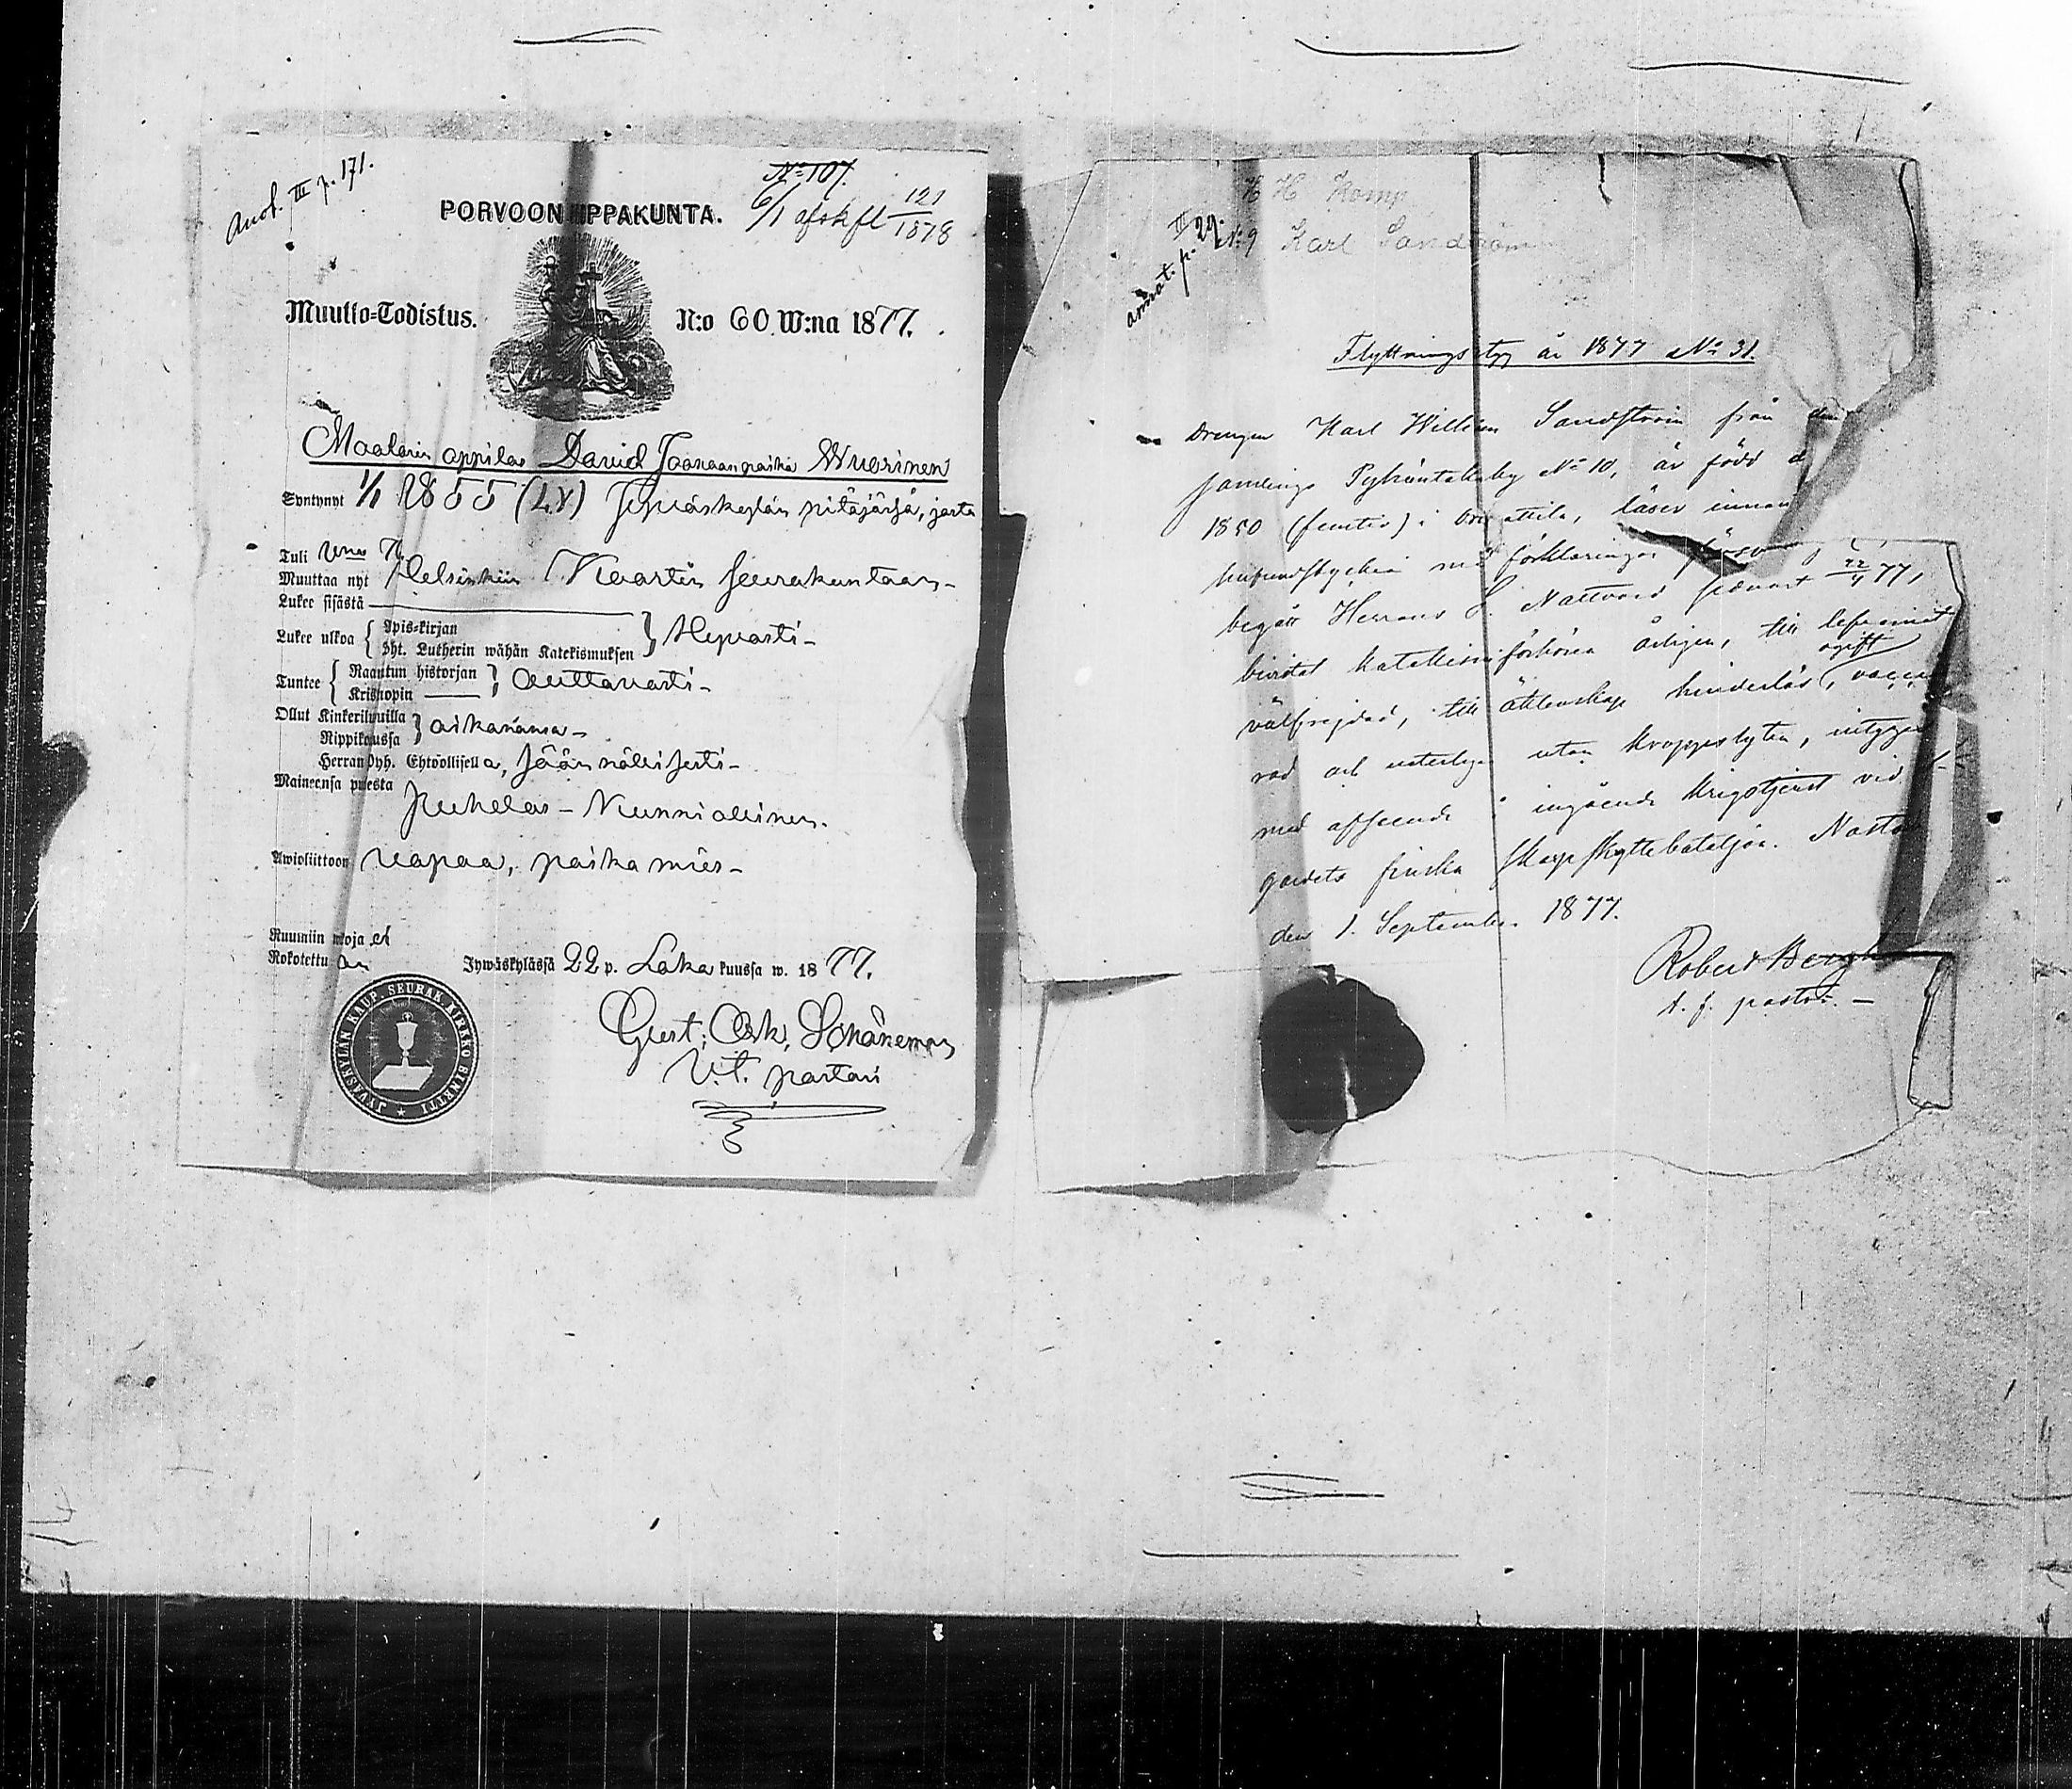 Anot. III p. 171.
No 107.
6/1 afskfl 121/1878
PORVOON HIPPAKUNTA.
Muutto=Todistus. N:o 60 W:na 1877.
Maalarin oppilas David Joonaanpoika Wuorinen
Syntynyt 1/1 1855 (LV) Jyväskylän pitäjässä, josta
Tuli
Muuttaa nyt Helsinkiin Kaartin seurakuntaan
Lukee sisästä
Lukee ulkoa { Apis=kirjan
Pht. Lutherin wähän Katekismuksen } Hepasti
Tuntee { Raamtun historjan
Kristiopin } Auttavasti
Ollut Kinkeriluuilla
Rippikoussa } aikanansa
Herran Pyh. Ehtoollisella, säännöllisesti
Maineensa puesta
Puhelas - Kunniallinen.
Awioliittoon vapaa, poikamies
Ruumiin woja ei
Rokotettu on
Jywäskylässä 22 p. Loka kuussa w. 1877.
Gust. Osk. Schöneman
V.t. pastori
JYVÄSKYLÄN KAUP. SEURAK. KIRKKO SINETTI
H H Komp
No 9 Karl Sandström
annot. p. II 29.
Flyttningsbetyg år 1877 No 31.
Drengen Karl Willhem Sandström från
samlings Pyhäntakaby No 10, är född d
1850 (femtio) i Orimattila, läser innan
hufvudstyckena med förklaringar
begått Herrans H. Nattvard senast 22/4 77,
bivistat katekismiförhören årligen, till lefvernet
välfrejdad, till äktenskap hinderlös, ogift
rad och utan kroppslyten, intygas
med afseende å ingående krigstjenst vid
gardets finska skarpskyttebataljon. Nastola
den 1. September. 1877.
Robert Bergh
t. f. pastor.